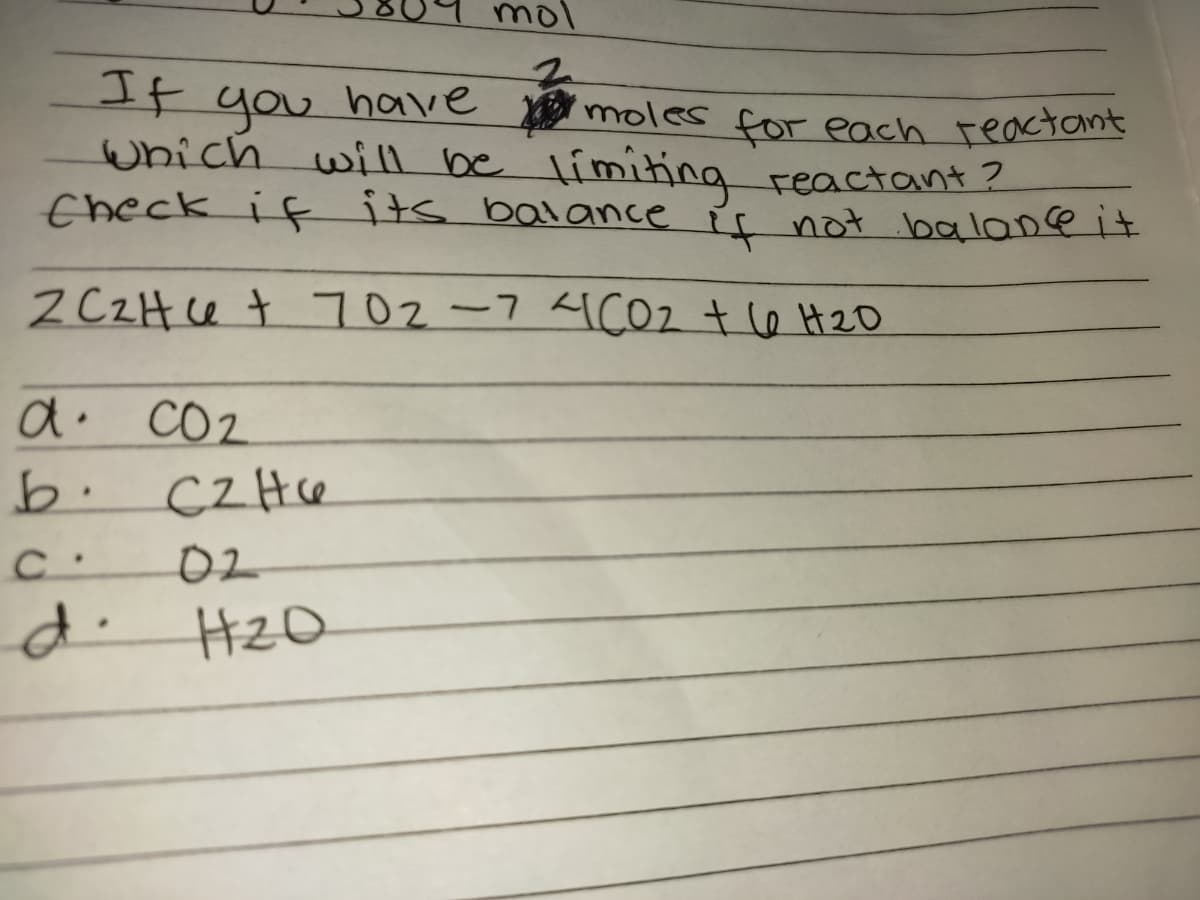 mol
2
If you have moles for each reactant
which will be limiting reactant?
Check if its balance if not balance it
2C2H6 + 7O2 -> 4CO2 + 6H2O
a. CO2
b. C2H6
c. O2
d. H2O